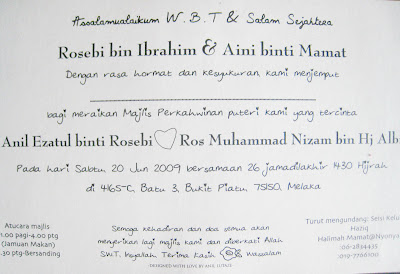 Assalamualaikum W.B.T & Salam Sejahtera
Rosebi bin Ibrahim & Aini binti Mamat
Dengan rasa hormat dan kesyukuran, kami menjemput
bagi meraikan Majlis Perkahwinan puteri kami yang tercinta
Anil Ezatul binti Rosebi Ros Muhammad Nizam bin Hj Alb
Pada hari Sabtu, 20 Jun 2009 bersamaan 26 jamadilakhir 1430 Hijrah
di 4165-C, Batu 3, Bukit Piatu, 75150, Melaka
Atucara majlis
1.00 pagi-4.00 ptg
(Jamuan Makan)
.30 ptg-Bersanding
Semoga kehadiran dan doa semua akan
menyerikan lagi majlis kami dan diberkati Allah
S.W.T. Kejailan Terima Kasih Wassalam
DESIGNED WITH LOVE BY ANIL
Turut mengundang: Seisi Kelu
Haziq
Halimah Mamat@Nyonya
06-2834435